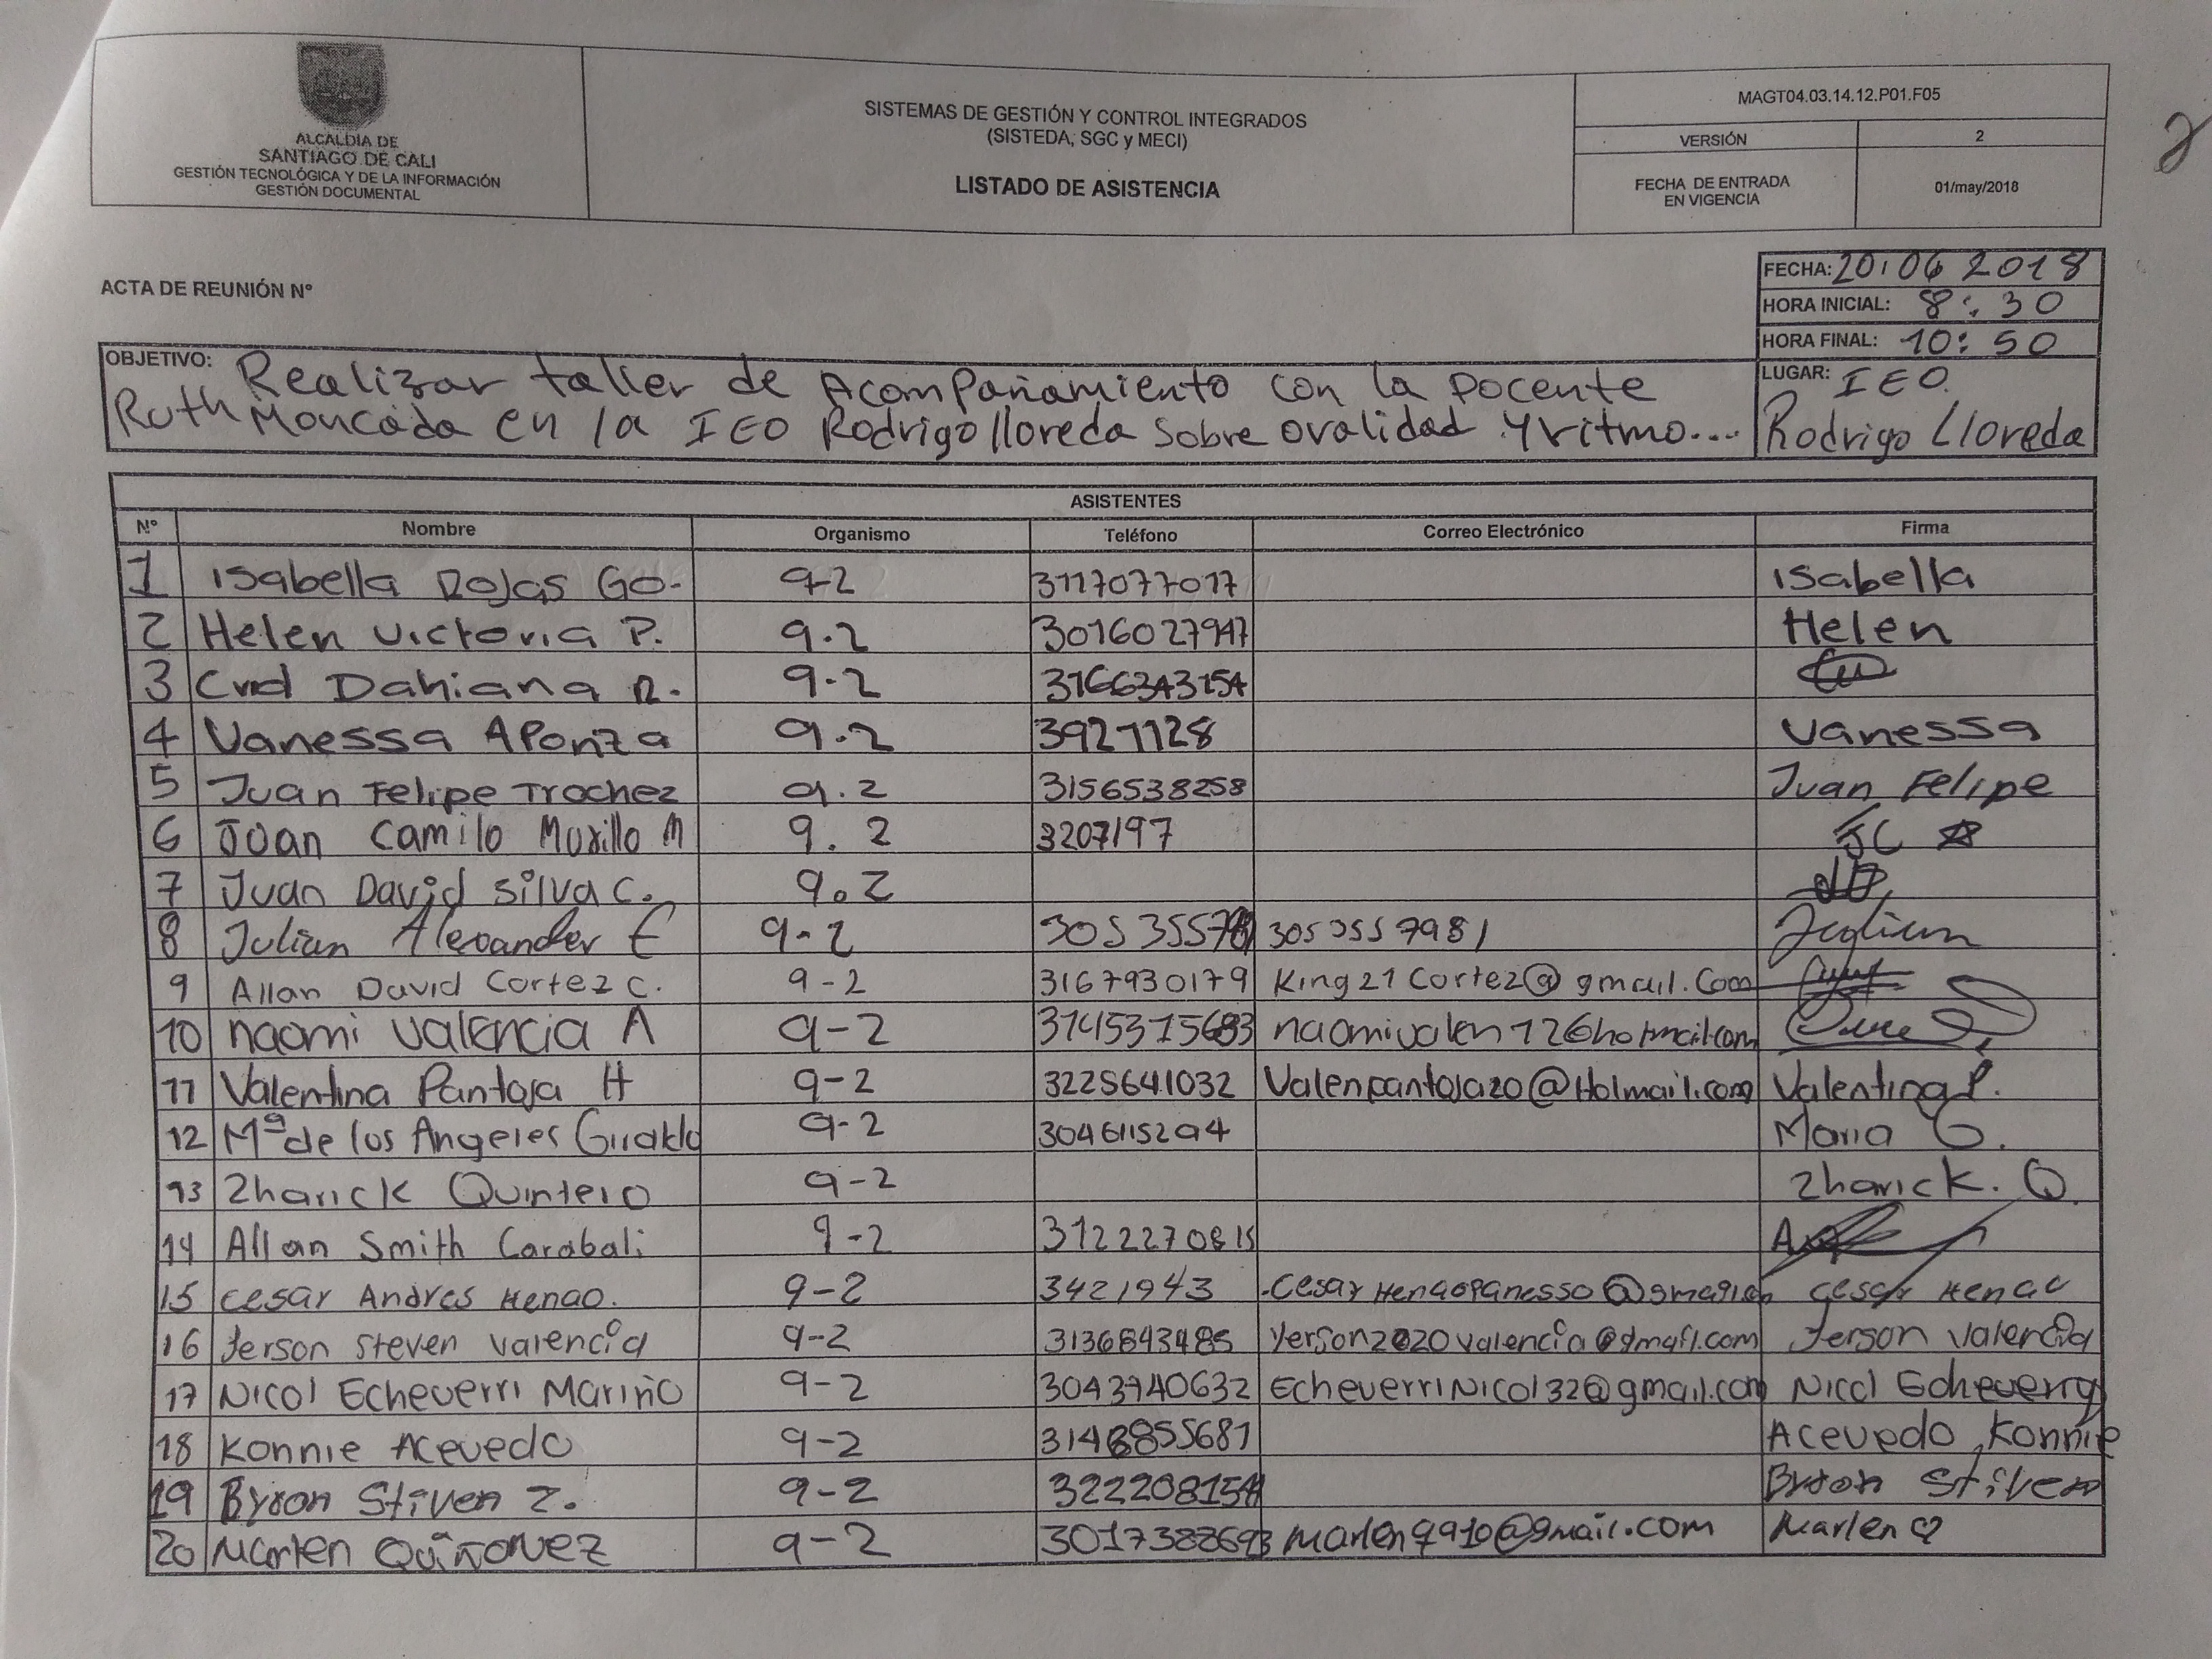 ALCALDÍA DE
SANTIAGO DE CALI
GESTIÓN TECNOLÓGICA Y DE LA INFORMACIÓN
GESTIÓN DOCUMENTAL
SISTEMAS DE GESTIÓN Y CONTROL INTEGRADOS
(SISTEDA, SGC y MECI)
LISTADO DE ASISTENCIA
MAGT04.03.14.12.P01.F05
VERSIÓN 2
FECHA DE ENTRADA
EN VIGENCIA
01/may/2018
2
ACTA DE REUNIÓN N°
FECHA: 20:06 2018
HORA INICIAL: 8:30
HORA FINAL: 10:50
LUGAR: IEO.
Rodrigo Lloreda
OBJETIVO: Realizar taller de Acompañamiento con la Docente
Ruth Moncada en la IEO Rodrigo lloreda sobre oralidad y ritmo...
ASISTENTES
N° Nombre Organismo Teléfono Correo Electrónico Firma
1 Isabella Rojas Go. 9-2 3117077017 Isabella
2 Helen Victoria P. 9.2 3016027947 Helen
3 Dahiana R. 9.2 3166343154
4 Vanessa Aponza 9.2 3921128 Vanessa
5 Juan Felipe Trochez 9.2 3156538258 Juan Felipe
6 Juan Camilo Murillo M 9.2 3207197 JC
7 Juan David Silva C. 9.2
8 Julian Alexander E 9-2 3053557981 Julian
9 Allan David Cortez C. 9-2 3167930179 King21Cortez@gmail.com
10 naomi valencia A 9-2 naomivalen12@hotmail.com
11 Valentina Pantoja H 9-2 3225641032 Valenpantoja20@Hotmail.com Valentina P.
12 Mª de los Angeles Giraldo 9-2 3046115294 Maria G.
13 Zharick Quintero 9-2 Zharick. Q.
14 Allan Smith Carabali 9-2 3122270815
15 Cesar Andres Henao. 9-2 3421943 Cesar Henao
16 Yerson Steven Valencia 9-2 3136843485 Yerson2020valencia@gmail.com Yerson Valencia
17 Nicol Echeverri Mariño 9-2 3043740632 EcheverriNicol32@gmail.com Nicol Echeverry
18 Konnie Acevedo 9-2 Acevedo, Konnie
19 Byron Stiven Z. 9-2 Byron Stiven
20 Marlen Quiñonez 9-2 3017388693 marlen9910@gmail.com Marlen